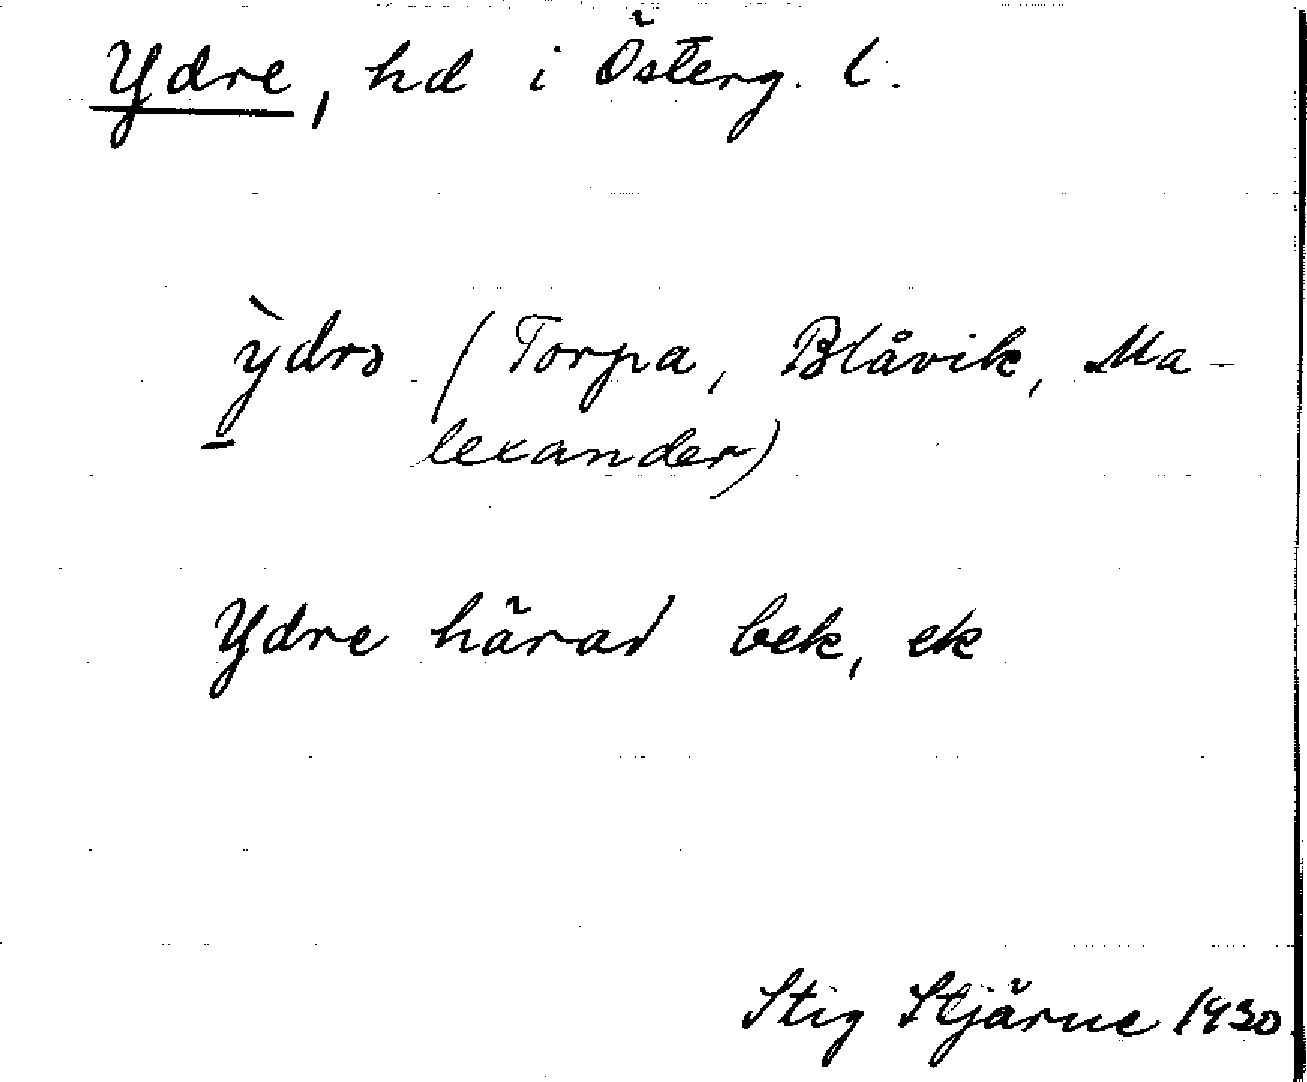 Ydre, hd i Österg. l.
ỳdrə (Torpa, Blåvik, Ma-
lexander)
Ydre härad bek, ek
Stig Stjärne 1930.